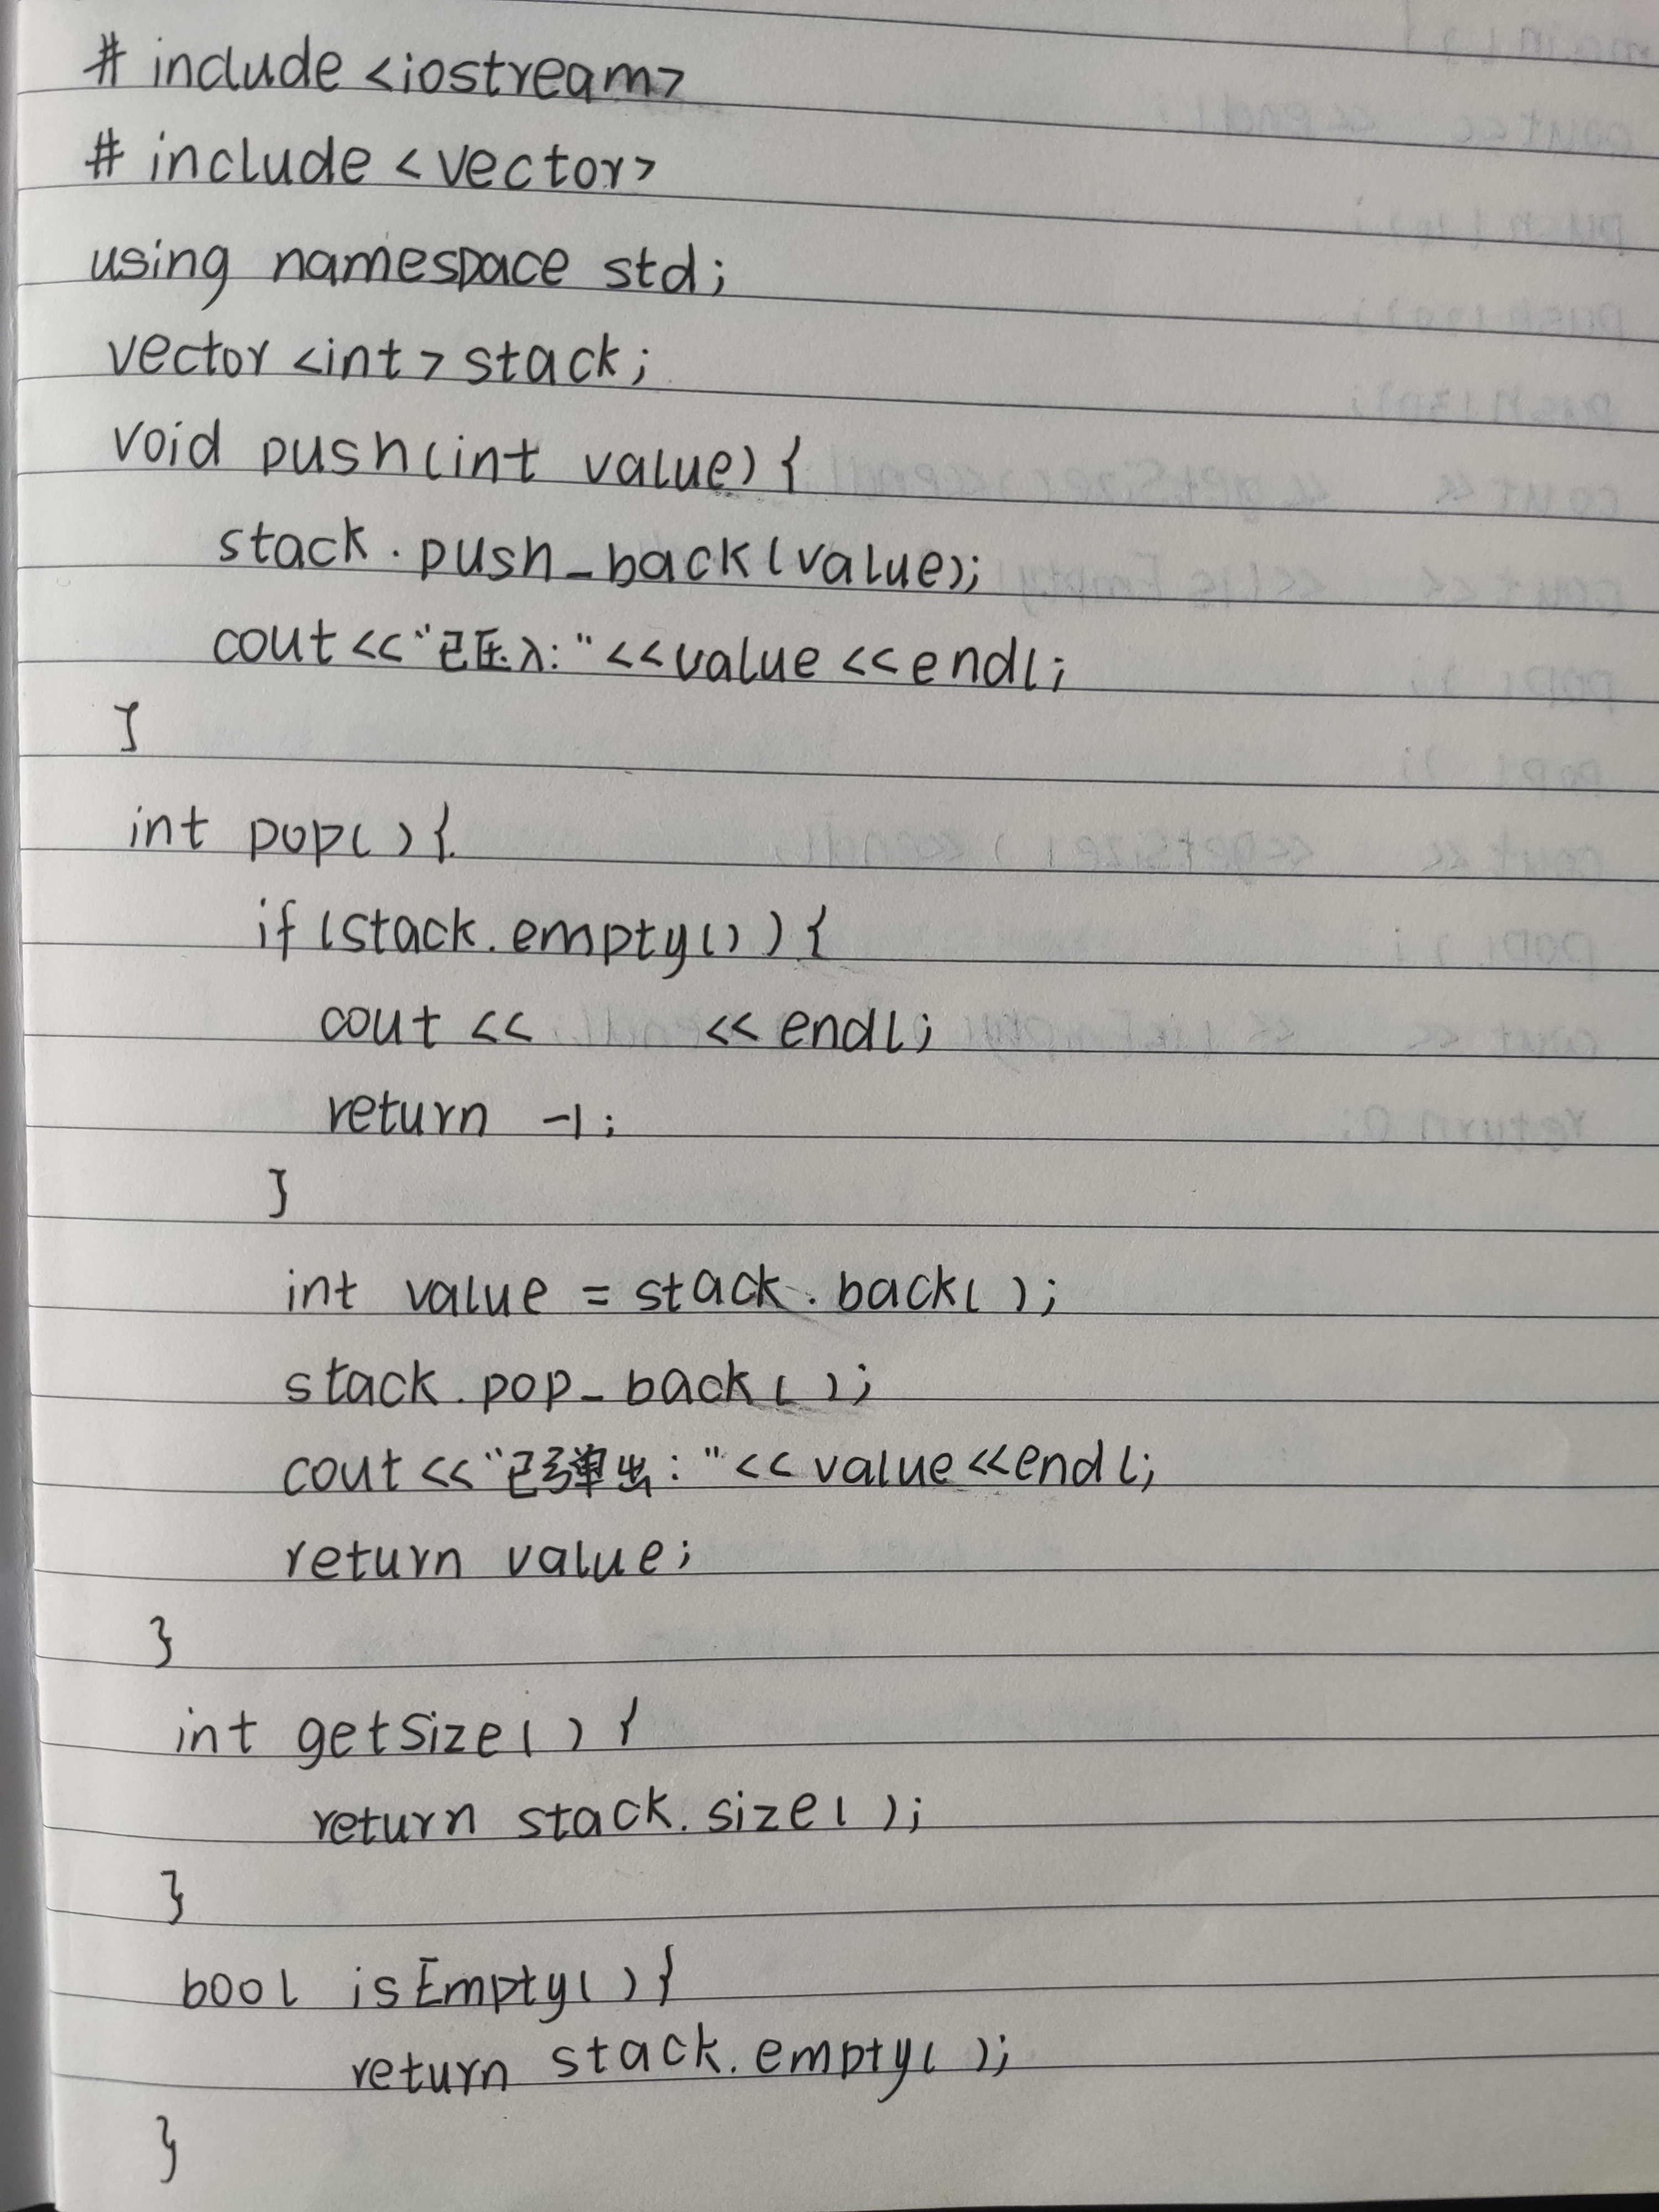 # include <iostream>
# include <vector>
using namespace std;
vector <int> stack;
void push(int value) {
stack.push_back(value);
cout <<"已压入:"<<value <<endl;
}
int pop() {
if (stack.empty()) {
cout << << endl;
return -1;
}
int value = stack.back();
stack.pop_back();
cout <<"已弹出:"<< value <<endl;
return value;
}
int getSize() {
return stack.size();
}
bool isEmpty() {
return stack.empty();
}